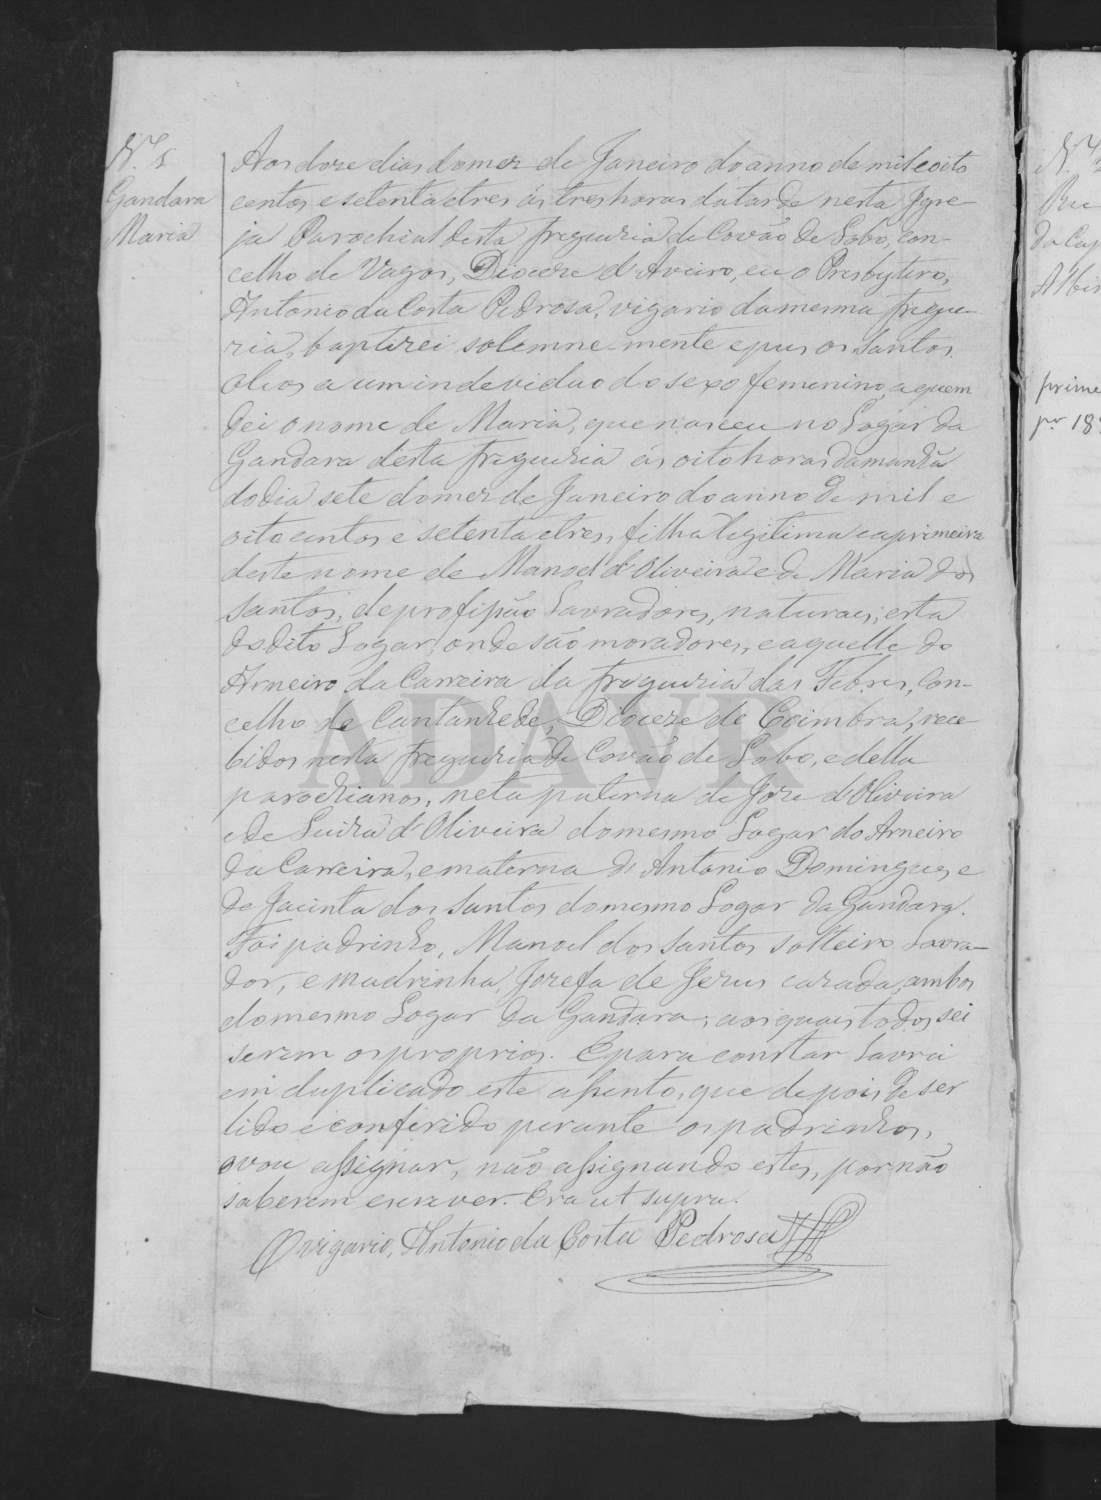 N.º 5
Gandara
Maria
Aos doze dias do mez de Janeiro do anno de mil e oito
centos e setenta e tres ás tres horas da tarde nesta Igre-
ja Parochial desta freguezia de Covão de Lobo, con-
celho de Vagos, Diocese d'Aveiro, eu o Presbytero,
Antonio da Costa Pedrosa, vigario da mesma fregue-
zia, baptizei solemne-mente e pus os Santos
Oleos a um indeviduo do sexo femenino, a quem
dei o nome de Maria, que nasceu no Logar da
Gandara desta freguezia ás oito horas da manhã
do dia sete do mez de Janeiro do anno de mil e
oito centos e setenta e tres, filha legitima e a primeira
deste nome de Manoel d'Oliveira e de Maria dos
Santos, de profissão Lavradores, naturaes, esta
do dito Logar, onde são moradores, e aquelle do
Arneiro da Carreira da freguezia das Febres, Con-
celho de Cantanhede, Diocese de Coimbra, rece-
bidos nesta freguezia de Covão de Lobo, e della
parochianos, neta paterna de Jose d'Oliveira
e de Luiza d'Oliveira do mesmo Logar do Arneiro
da Carreira, e materna de Antonio Domingues, e
de Jacinta dos Santos do mesmo Logar da Gandara.
Foi padrinho, Manoel dos Santos solteiro Lavra-
dor, e madrinha, Josefa de Jesus casada, ambos
do mesmo Logar da Gandara; aos quaes todos sei
serem os proprios. E para constar lavrei
em duplicado este assento, que depois de ser
lido e conferido perante os padrinhos,
o vou assignar, não assignando estes, por não
saberem escrever. Era ut supra.
O vigario, Antonio da Costa Pedrosa
ADAVR
N.º
da Cap
Albi
prime
pr 18